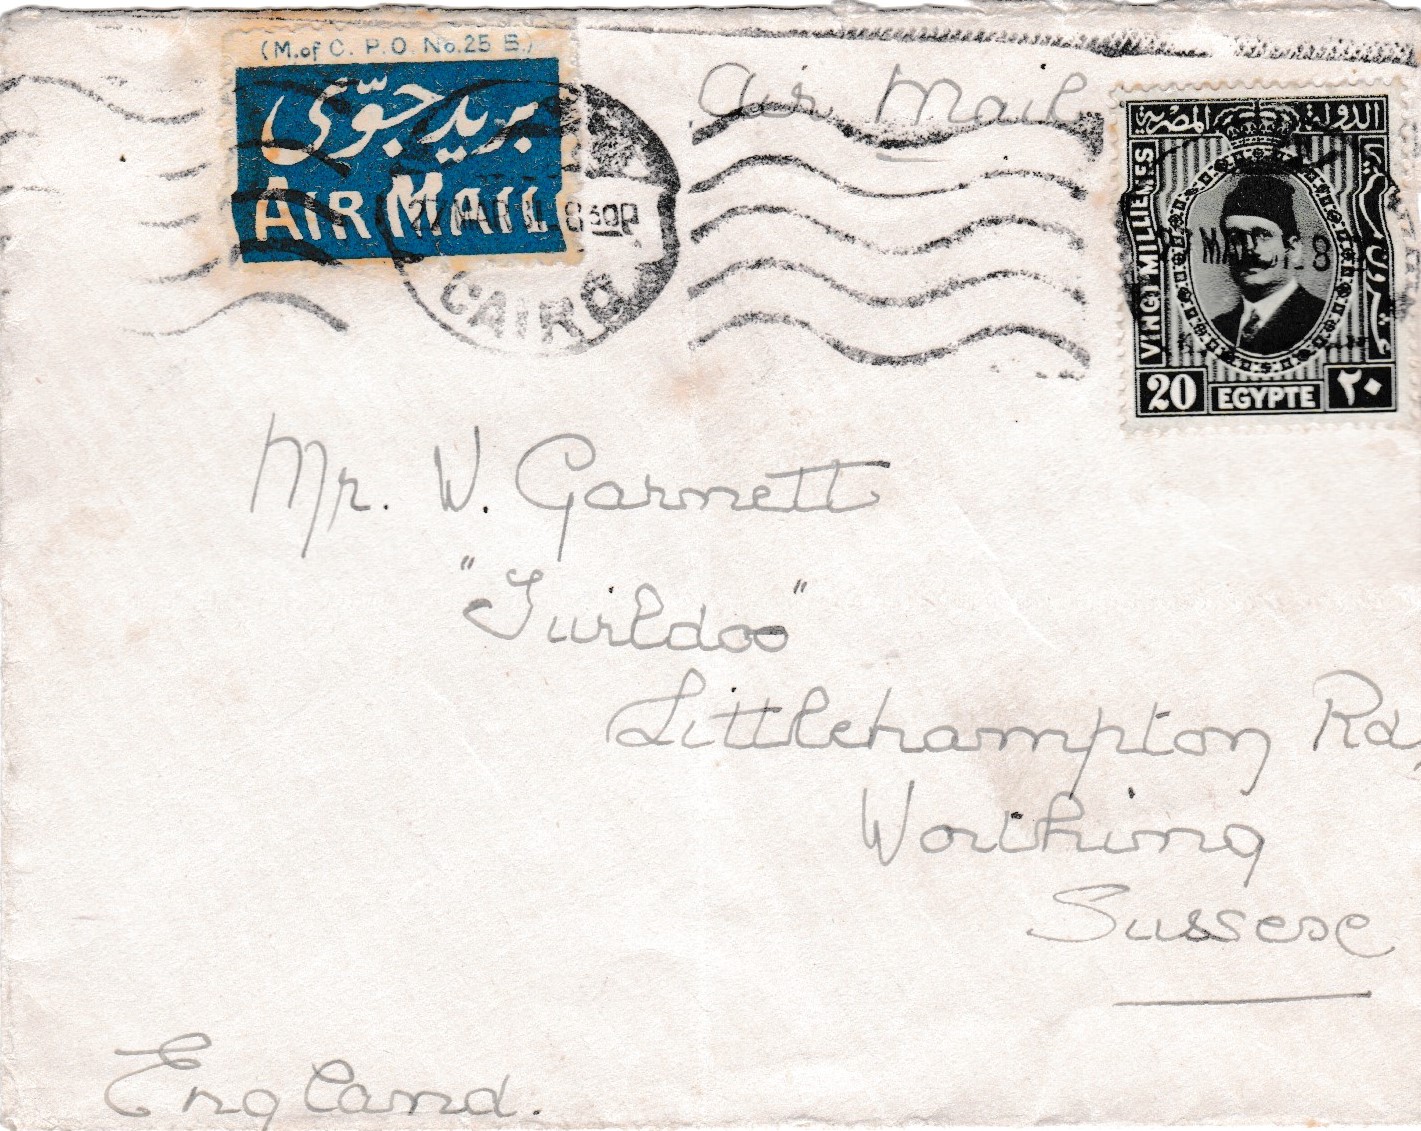 (M. of C. P.O. No. 25 E.)
بريد جوّى
AIR MAIL
MAR 8 30 P
CAIRO
Air Mail
الدولة المصرية
VINGT MILLIEMES
MAR 8
20 EGYPTE ٢٠
Mr. W. Garnett
"Turldoo"
Littlehampton Rd,
Worthing
Sussex
England.